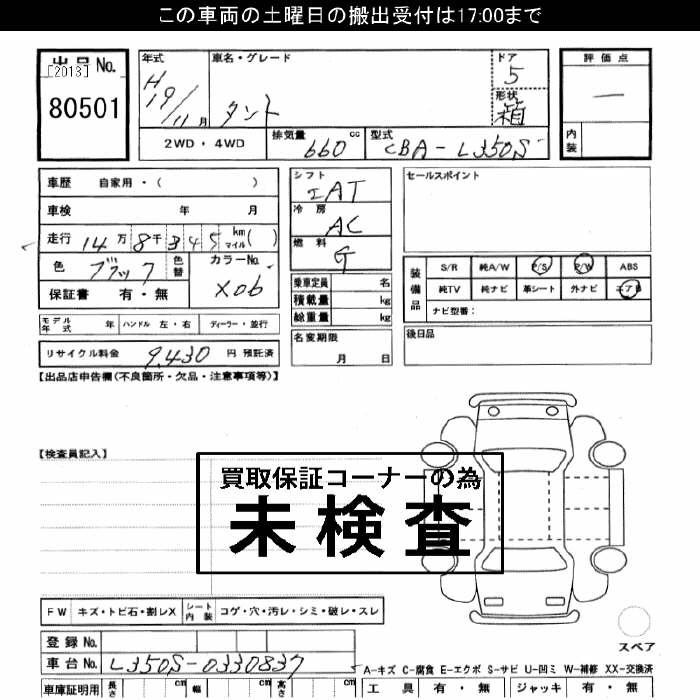 この車両の土曜日の搬出受付は17:00まで
出品No.
[2013]
80501
年式
H19/11月
車名・グレード
タント
ドア
5
形状
箱
評価点
—
内装
2WD・4WD
排気量
660 cc
型式
CBA-L350S
車歴 自家用・( )
車検 年 月
走行 14万8千345 km マイル ( )
色 ブラック 色替
カラーNo.
X06
保証書 有・無
シフト
IAT
冷房
AC
燃料
G
乗車定員 名
積載量 kg
総重量 kg
セールスポイント
装備品
S/R 純A/W P/S P/W ABS
純TV 純ナビ 革シート 外ナビ エアB
ナビ型番:
モデル年式 年 ハンドル 左・右 ディーラー・並行
名変期限
月 日
後日品
リサイクル料金 9,430 円 預託済
【出品店申告欄(不良個所・欠品・注意事項等)】
【検査員記入】
買取保証コーナーの為
未検査
FW キズ・トビ石・割レX シート内装 コゲ・穴・汚レ・シミ・破レ・スレ
スペア
登録No.
車台No. L350S-0330837
A-キズ C-腐食 E-エクボ S-サビ U-凹ミ W-補修 XX-交換済
車庫証明用 長さ cm 幅 cm 高さ cm
工具 有・無 ジャッキ 有・無